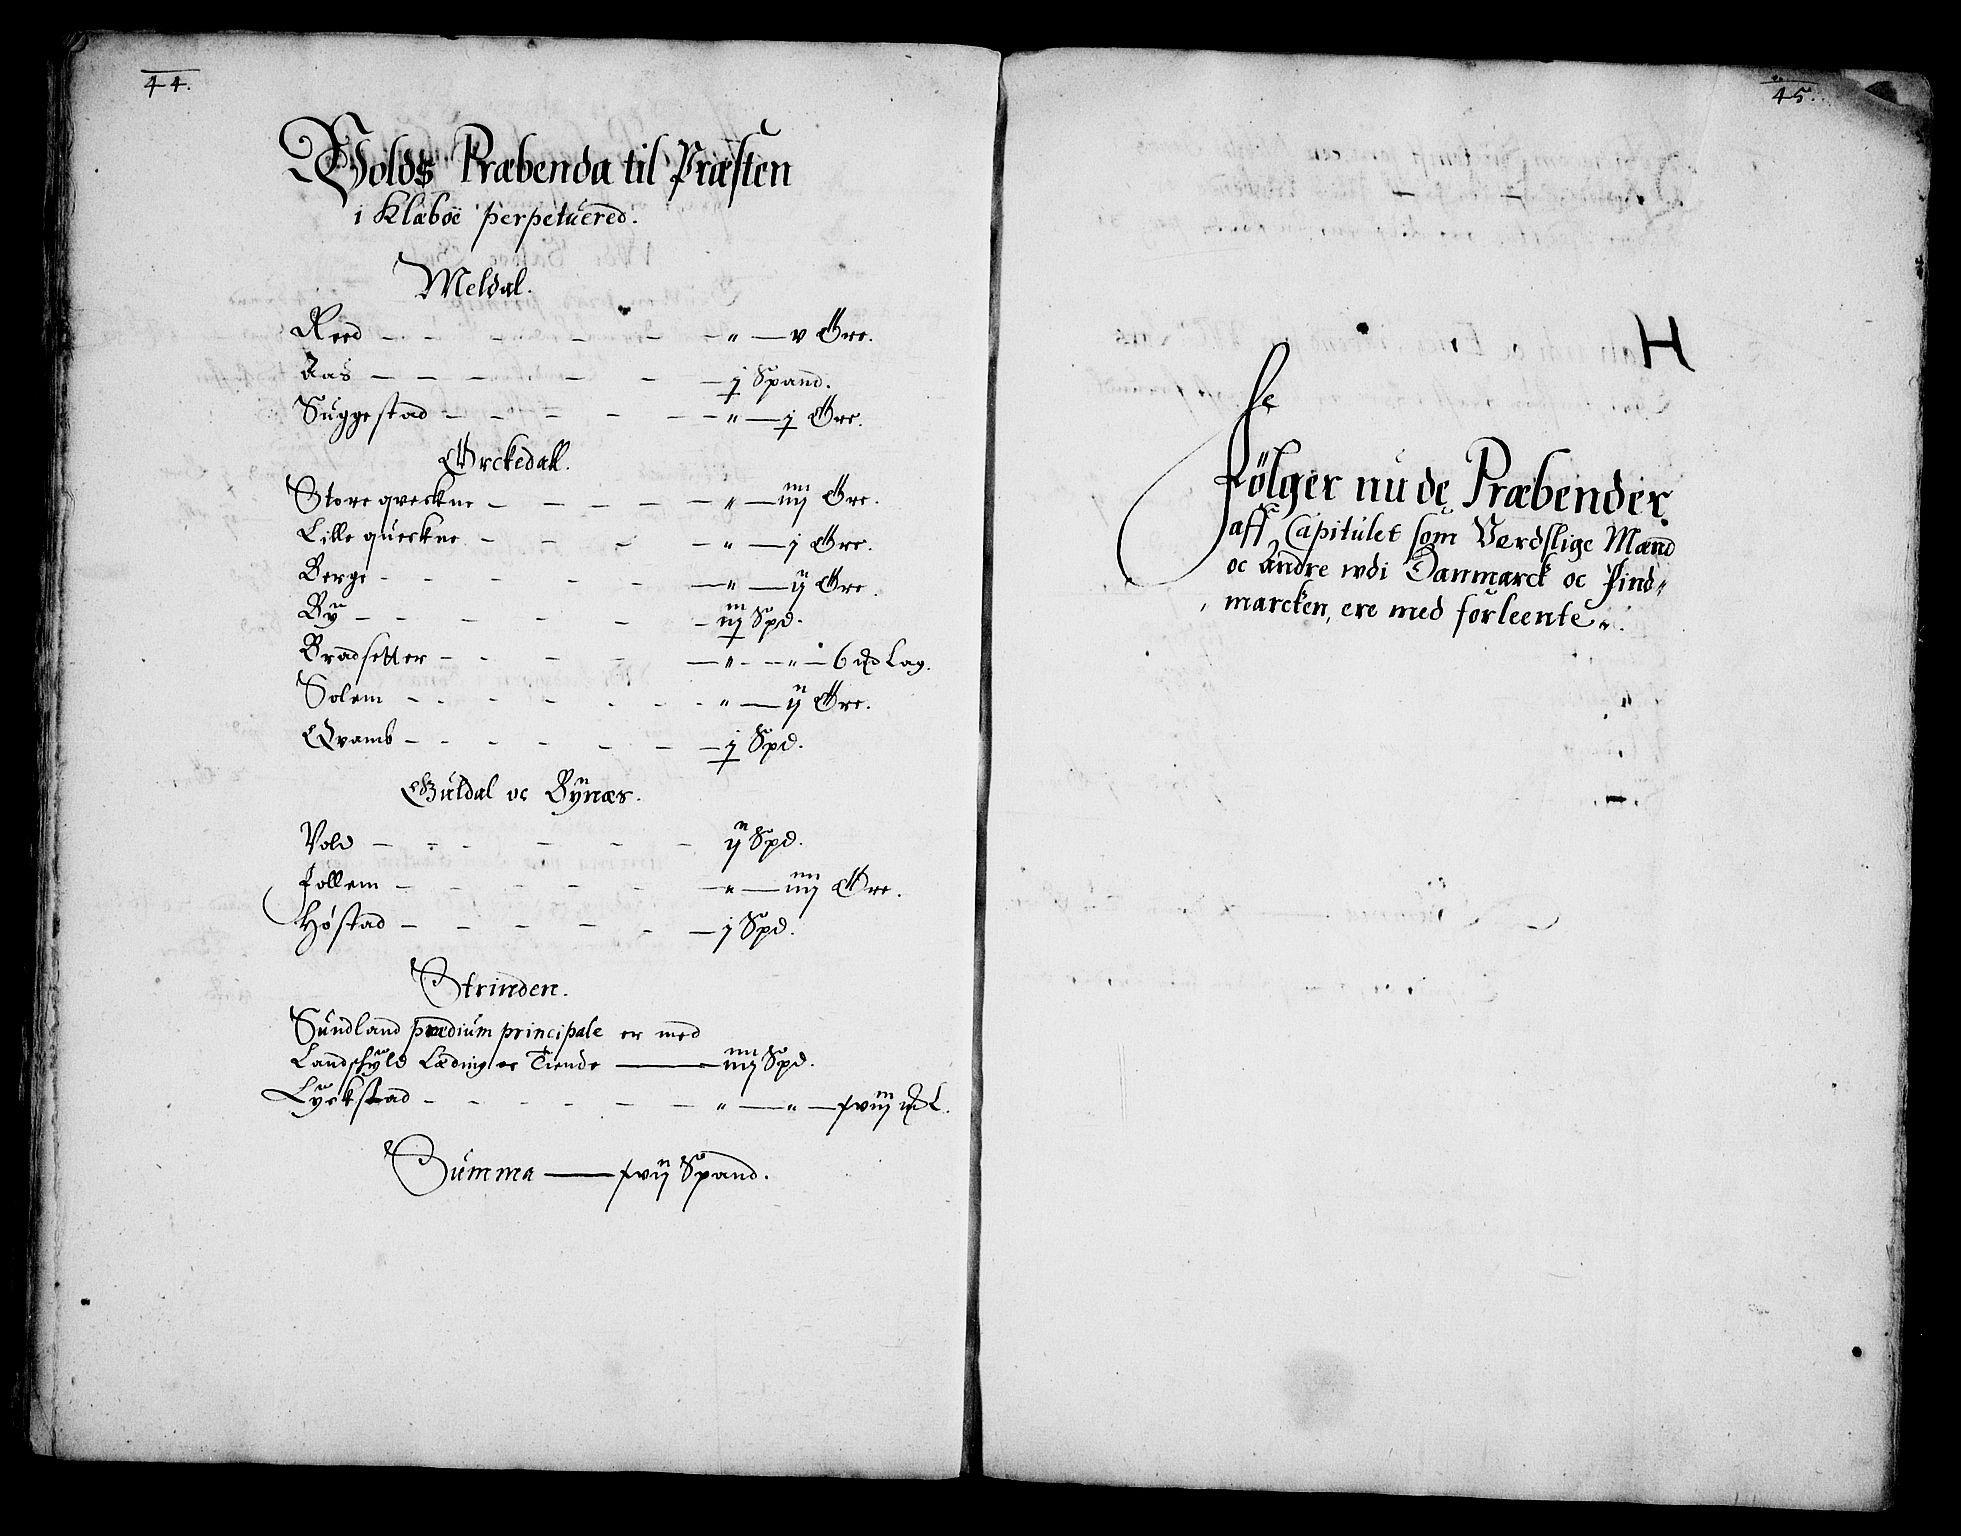 44.
Volds Præbenda til Præsten
i Klæboe perpetuered.
Meldal.
Reed — " — v Öre.
Aas — j Spand.
Suggestad — " — j Öre.
Örckedall.
Store qveskne — " — iiij Öre.
Lille queskne — " — j Öre.
Berge — " — ij Öre.
By — iij Spd.
Bradsetter — " — " — 6 Lag.
Solem — " — ij Öre.
Qvamb — j Spd.
Guldal oc Bynæs.
Vold — ij Spd.
Follem — " — iiij Öre.
Høstad — j Spd.
Strinden.
Sundland prædium principale er med
Landschyld Læding oc Tiende — iiij Spd.
Lyckstad — " — " — xviij L.
Summa — xvij Spand.
45.
H
Fölger nu de Præbender
aff Capitulet som Verdslige Mænd
oc Andre udi Danmarck oc Find-
marcken, ere med forleente.